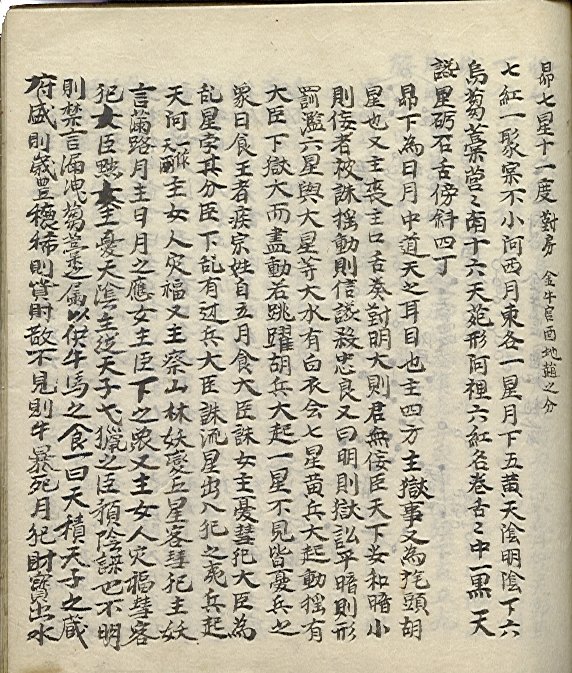 昴七星十一度 對房 金牛宮酉地趙之分
七紅一聚寀不小阿西月東各一星月下五黄天陰明陰下六
烏蒭藁營〻南十六天苑形阿裡六紅名卷舌〻中一黒天
讒星砺石舌傍斜四丁
昴下為日月中道天之耳目也主四方主獄事又為旄頭胡
星也又主喪主口舌奏對明大則君無佞臣天下安和暗小
則佞者被誅揺動則信讒殺忠良又曰明則獄訟平暗則形
罰濫六星與大星等大水有白衣会七星黄兵大起動揺有
大臣下獄大而盡動若跳躍胡兵大起一星不見皆憂兵之
象日食王者疾宗姓自五月食大臣誅女主憂彗犯大臣為
乱星孛其分臣下乱有边兵大臣誅流星出入犯之夷兵起
天河一作天阿主女人灾福又主察山林妖变五星客彗犯主妖
言滿路月主日月之應女主臣下之象又主女人灾福彗客
犯女臣黜女主憂天陰主従天子弋獵之臣預陰謀也不明
則禁言漏洩蒭藁之属以供牛馬之食一曰天積天子之藏
府盛則歳豊穰稀則貨財散不見則牛暴死月犯財寳出水